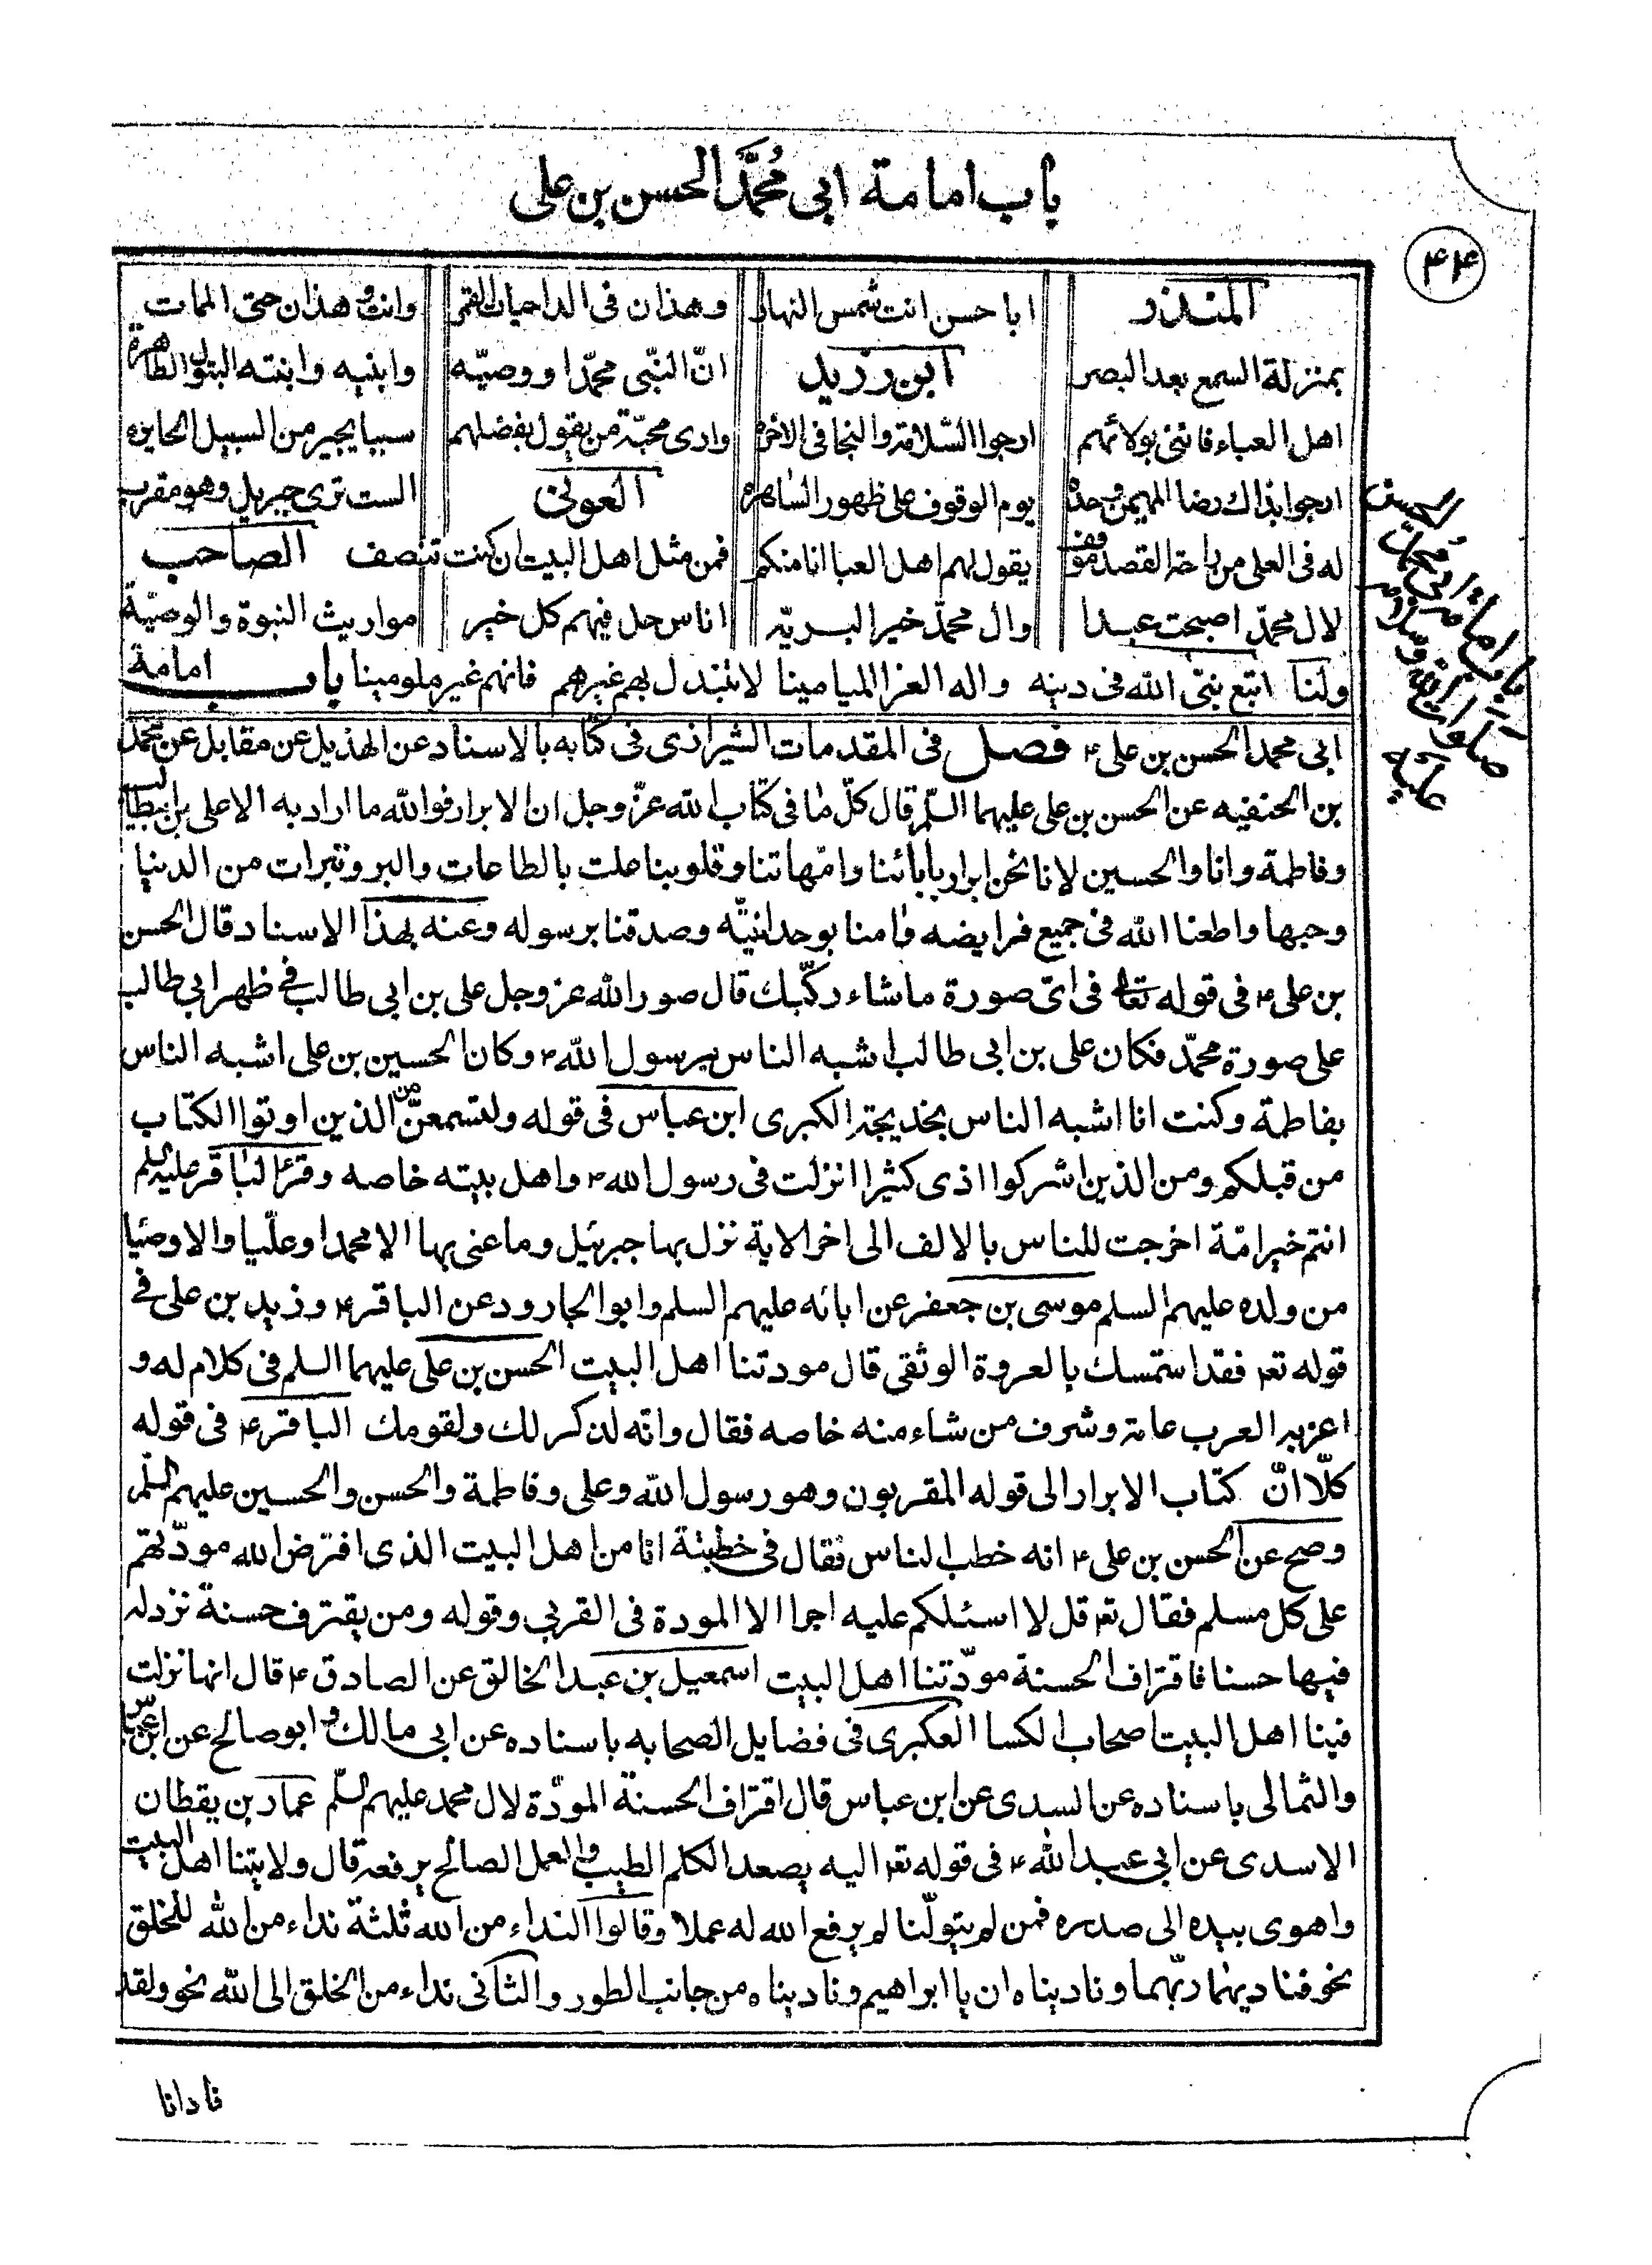 باب امامة ابی مُحمَّد الحسن بن علی
۴۴
المنذر و ابا حسن انت شمس النهار وهذان فی الداجیات القمر وانت وهذان حتی الممات
بمنزلة السمع بعد البصر ابن رزیک انّ النّبی محمّدا ووصیّه وابنیه وابنته البتول الطاهرة
اهل العباء فاننی بولائهم ارجوا السّلامة والنجا فی الاخرة واری محبّة من یقول بفضلهم سببا یجیر من السبیل الجایره
ارجوا بذاك رضا المهیمن وحده یوم الوقوف علی ظهور الساهره العونی الست تری جبریل وهو مقرب
له فی العلی من راحة القصد موقف یقول لهم اهل العبا انا منکم فمن مثل اهل البیت ان کنت تنصف الصاحب
لال محمّد اصبحت عبدا وال محمّد خیر البریّه اناس حل فیهم کل خیر مواریث النبوة والوصیّة
ولنا اتبع نبیّ الله فی دینه واله الغر المیامینا لا تبدل بهم غیرهم فانهم غیر ملومینا باب امامة
ابی محمد الحسن بن علی ۴ فصل فی المقدمات الشیرازی فی کتابه بالاسناد عن الهذیل عن مقابل عن محمد
بن الحنفیه عن الحسن بن علی علیهما السلم قال کلّ ما فی کتاب الله عزّ وجل ان الابرار فوالله ما اراد به الا علی بن ابیطالب
وفاطمة وانا والحسین لانا نحن ابرار بابائنا وامّهاتنا وقلوبنا علت بالطاعات والبر وتبرات من الدنیا
وحبها واطعنا الله فی جمیع فرایضه وامنا بوحدانیّته وصدقنا برسوله وعنه بهذا الاسناد قال الحسن
بن علی ۴ فی قوله تعالی فی ایّ صورة ما شاء رکّبك قال صور الله عز وجل علی بن ابی طالب فی ظهر ابی طالب
علی صورة محمّد فکان علی بن ابی طالب اشبه الناس برسول الله ۳ وکان الحسین بن علی اشبه الناس
بفاطمة وکنت انا اشبه الناس بخدیجة الکبری ابن عباس فی قوله ولتسمعنّ من الذین اوتوا الکتاب
من قبلکم ومن الذین اشرکوا اذی کثیرا انزلت فی رسول الله ۳ واهل بیته خاصه وقرء الباقر علیه السلم
انتم خیر امّة اخرجت للناس بالالف الی اخر الایة نزل بها جبرئیل وما عنی بها الا محمدا وعلّیا والاوصیا
من ولده علیهم السلم موسی بن جعفر عن ابائه علیهم السلم وابو الجارود عن الباقر ۴ وزید بن علی فی
قوله تعه فقد استمسك بالعروة الوثقی قال مودتنا اهل البیت الحسن بن علی علیهما السلم فی کلام له و
اعز به العرب عامة وشرف من شاء منه خاصه فقال وانّه لذکر لك ولقومك الباقر ۴ فی قوله
کلّا انّ کتاب الابرار الی قوله المقربون وهو رسول الله وعلی وفاطمة والحسن والحسین علیهم السلم
وصح عن الحسن بن علی ۴ انه خطب الناس فقال فی خطبتة انا من اهل البیت الذی افترض الله مودّتهم
علی کل مسلم فقال تعه قل لا اسئلکم علیه اجرا الا المودة فی القربی وقوله ومن یقترف حسنة نزد له
فیها حسنا فاقتراف الحسنة مودّتنا اهل البیت اسمعیل بن عبد الخالق عن الصادق ۴ قال انها نزلت
فینا اهل البیت اصحاب الکسا العکبری فی فضایل الصحابه باسناده عن ابی مالك وابو صالح عن ابن عباس
والثمالی باسناده عن السدی عن ابن عباس قال اقتراف الحسنة المودّة لال محمد علیهم السلم عمار بن یقطان
الاسدی عن ابی عبد الله ۴ فی قوله تعه الیه یصعد الکلم الطیب والعمل الصالح یرفعه قال ولایتنا اهل البیت
واهوی بیده الی صدره فمن لم یتولّنا لم یرفع الله له عملا وقالوا النداء من الله ثلثة نداء من الله للخلق
نحو فنادیهما ربّهما ونادیناه ان یا ابراهیم ونادیناه من جانب الطور والثانی نداء من الخلق الی الله نحو ولقد
نادانا